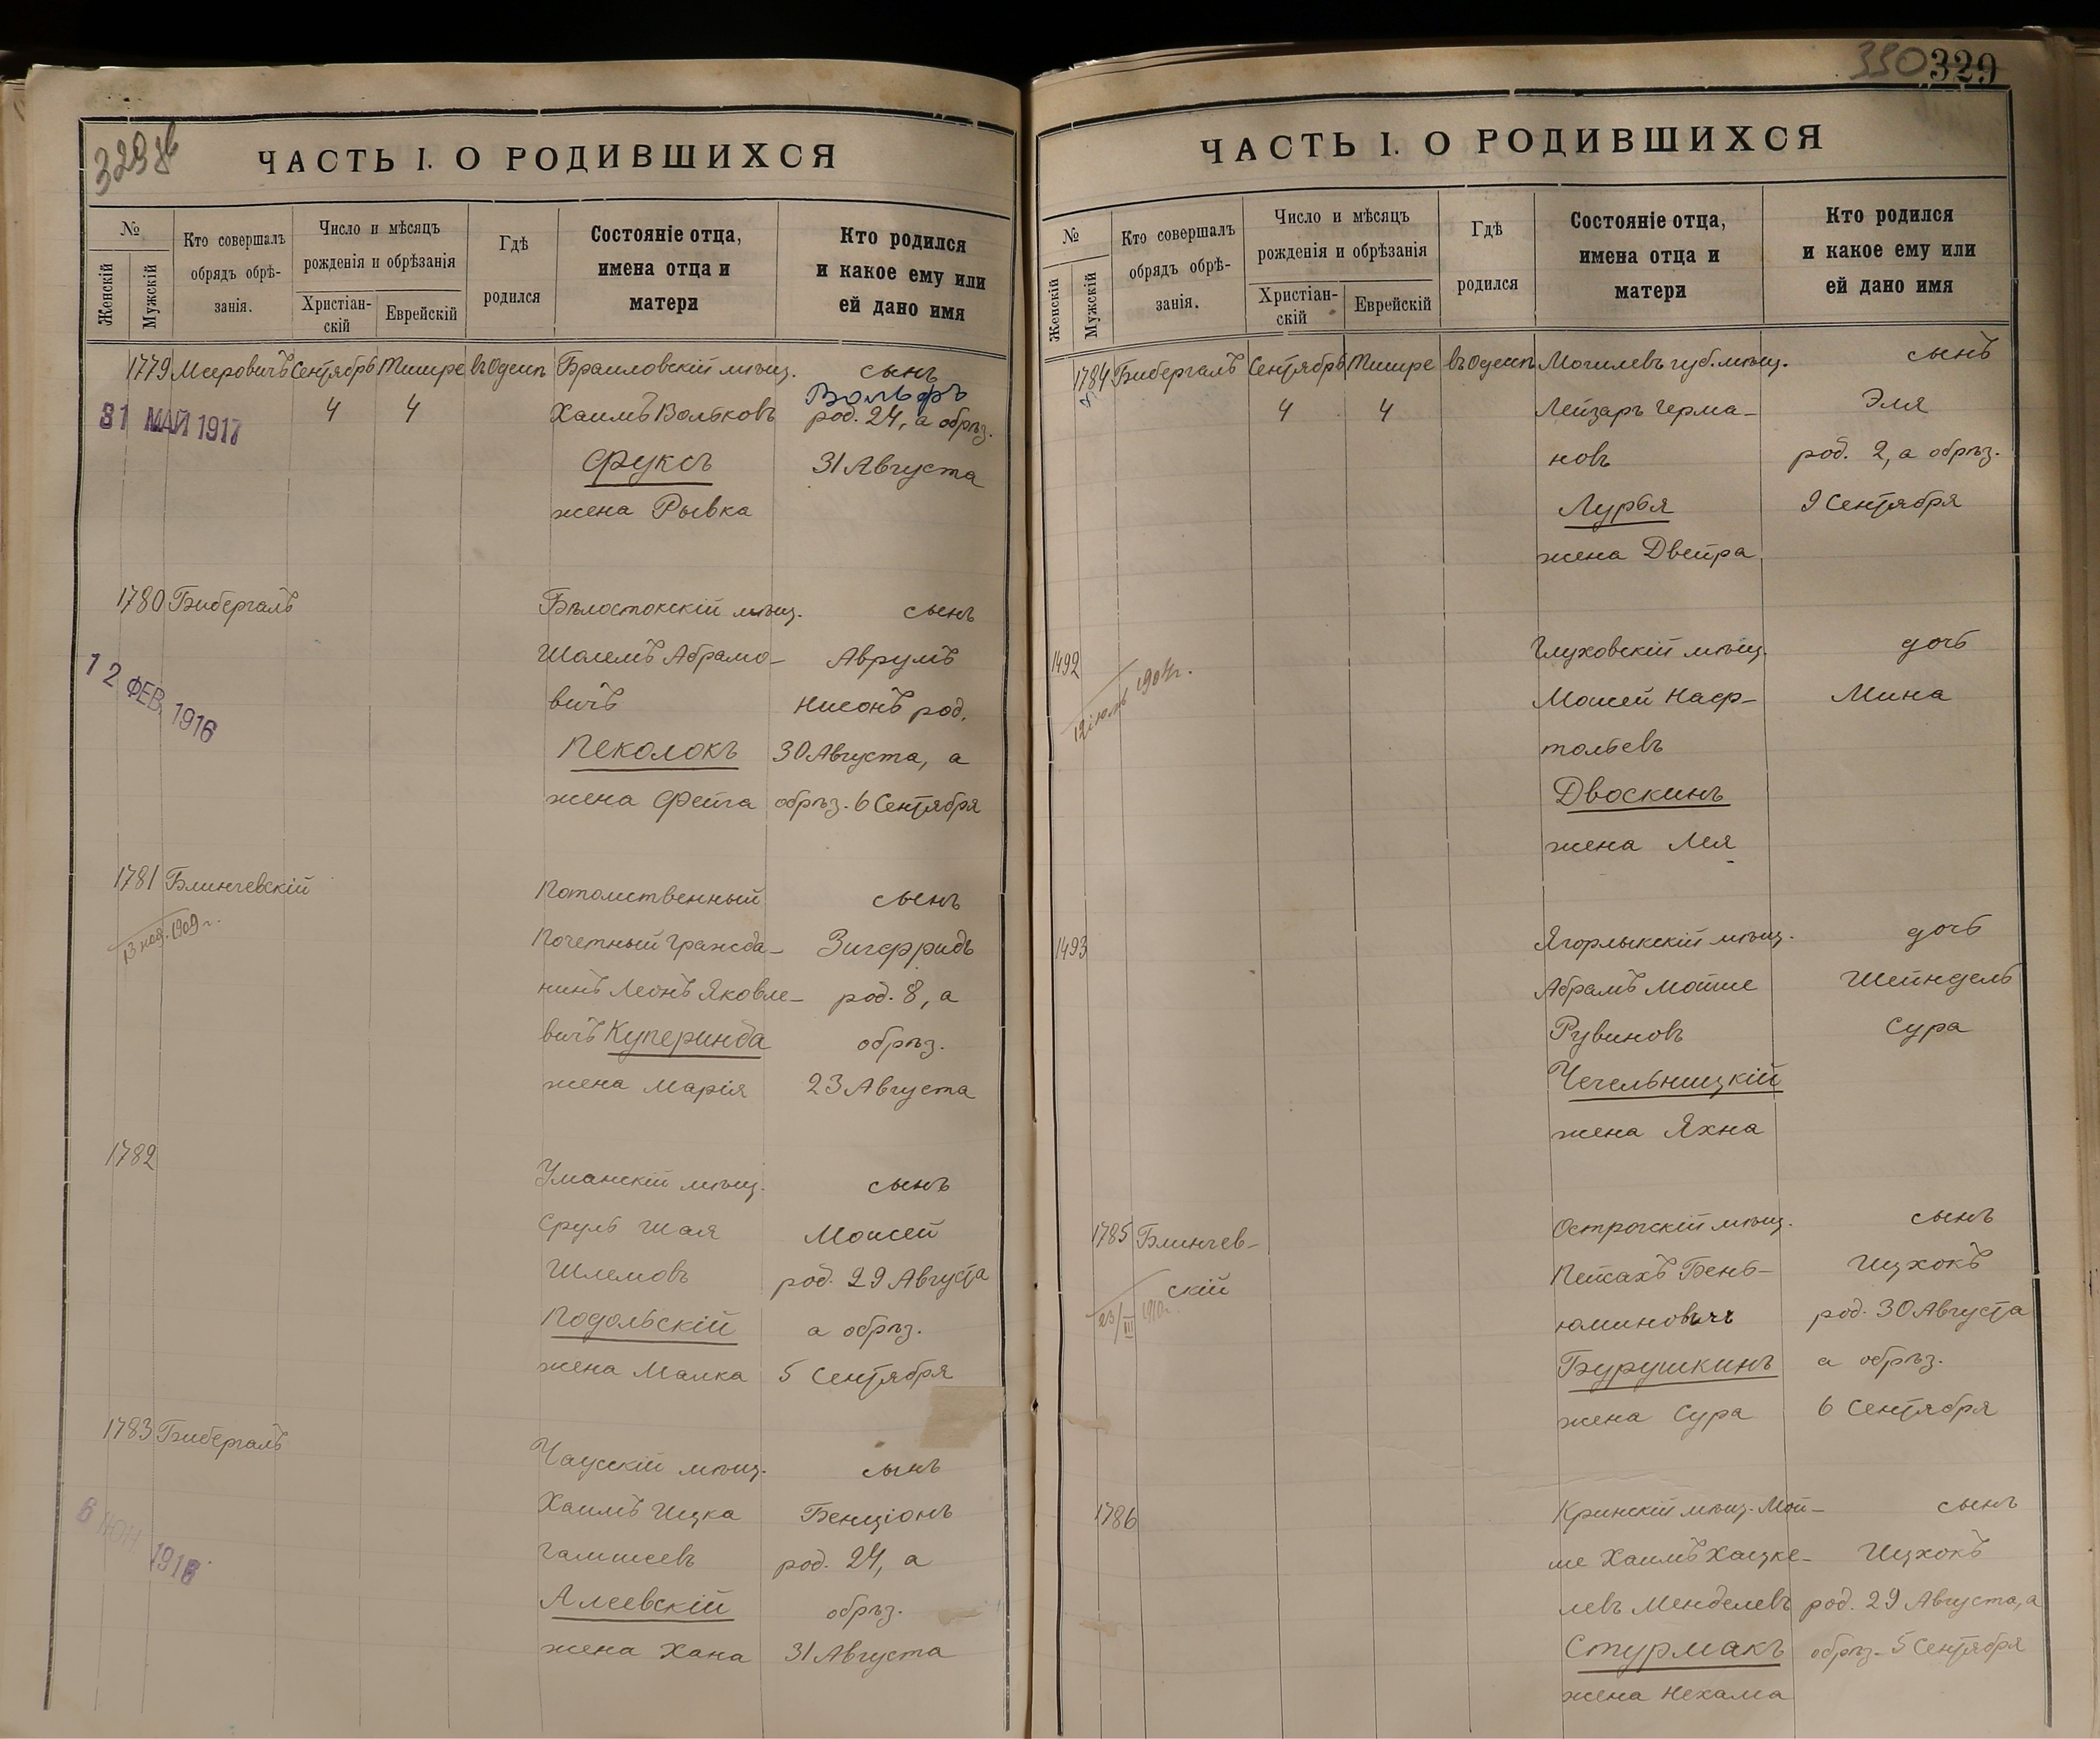 329об
ЧАСТЬ I. О РОДИВШИХСЯ
№
Женскій
Мужскій
Кто совершалъ
обрядъ обрѣ-
занія.
Число и мѣсяцъ
рожденія и обрѣзанія
Христіан-
скій
Еврейскій
Гдѣ
родился
Состояніе отца,
имена отца и
матери
Кто родился
и какое ему или
ей дано имя
1779 Мееровичъ Сентябрь Тишре въ Одессѣ Браиловскій мѣщ. сынъ
Вольфъ
31 МАЙ 1917 4 4 Хаимъ Вольковъ род. 24, а обрѣз.
Фуксъ 31 Августа
жена Рывка
1780 Бибергалъ Бѣлостокскій мѣщ. сынъ
Шолемъ Абрамо- Аврумъ
12 ФЕВ. 1916 вичъ Нисонъ род.
Пеколокъ 30 Августа, а
жена Фейга обрѣз. 6 Сентября
1781 Блинчевскій Потомственный сынъ
13 ноя. 1909 г. Почетный Гражда- Зигфридъ
нинъ Леонъ Яковле- род. 8, а
вичъ Куперинда обрѣз.
жена Марія 23 Августа
1782 Уманскій мѣщ. сынъ
Сруль Шая Моисей
Шлемовъ род. 29 Августа
Подольскій а обрѣз.
жена Малка 5 Сентября
1783 Бибергалъ Чаусскій мѣщ. сынъ
Хаимъ Ицка Бенціонъ
1916 род. 24, а
Алеевскій обрѣз.
жена Хана 31 Августа
330 329
ЧАСТЬ I. О РОДИВШИХСЯ
№
Женскій
Мужскій
Кто совершалъ
обрядъ обрѣ-
занія.
Число и мѣсяцъ
рожденія и обрѣзанія
Христіан-
скій
Еврейскій
Гдѣ
родился
Состояніе отца,
имена отца и
матери
Кто родился
и какое ему или
ей дано имя
1784 Бибергалъ Сентябрь Тишре въ Одессѣ Могилевъ губ. мѣщ. сынъ
4 4 Лейзаръ Герма- Эля
новъ род. 2, а обрѣз.
Лурья 9 Сентября
жена Двейра
1492 Глуховскій мѣщ. дочь
12 іюль 1904 г. Моисей Наф- Мина
тольевъ
Двоскинъ
жена Лея
1493 Ягорлыкскій мѣщ. дочь
Абрамъ Мойше Шейндель
Рувиновъ Сура
Чечельницкій
жена Яхна
1785 Блинчев- Острогскій мѣщ. сынъ
скій Пейсахъ Бень- Ицхокъ
23/III 1910 г. юминовичъ род. 30 Августа
Бурушкинъ а обрѣз.
жена Сура 6 Сентября
1786 Кринскій мѣщ. Мой- сынъ
ше Хаимъ Хацке- Ицхокъ
левъ Менделевъ род. 29 Августа, а
Стурмакъ обрѣз. 5 Сентября
жена Нехама